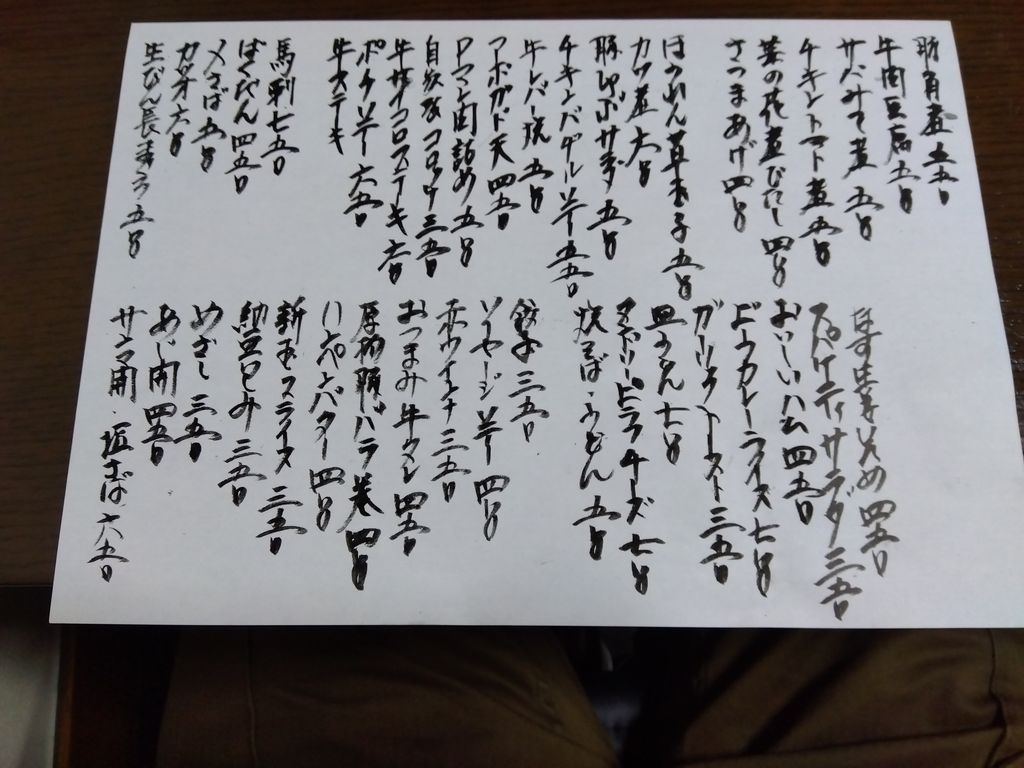 豚角煮 五五〇
牛肉豆腐 五〇〇
サバみそ煮 五〇〇
チキントマト煮 五〇〇
菜の花煮びたし 四〇〇
さつまあげ 四〇〇
ほうれん草玉子 五〇〇
カツ煮 六〇〇
豚しゃぶサラダ 五〇〇
チキンバジルソテー 五五〇
牛レバー焼 五〇〇
アボガド天 四五〇
ピーマン肉詰め 五〇〇
自家製コロッケ 三五〇
牛サイコロステーキ 六〇〇
ポークソテー 六五〇
牛ステーキ
馬刺 七五〇
ばくだん 四五〇
〆さば 五〇〇
カツオ 六〇〇
生びん長まぐろ 五〇〇
スパゲティサラダ 三五〇
おいしいハム 四五〇
ビーフカレーライス 七〇〇
ガーリックトースト 三五〇
皿うどん 七〇〇
チーズ 七〇〇
焼そば・うどん 五〇〇
餃子 三五〇
ソーセージソテー 四〇〇
赤ウインナ 三五〇
おつまみ牛タン 四五〇
厚切豚バラ巻 四〇〇
ハンペンバター 四〇〇
新玉スライス 三五〇
納豆包み 三五〇
めざし 三五〇
あじ開 四五〇
サンマ開・塩さば 六五〇